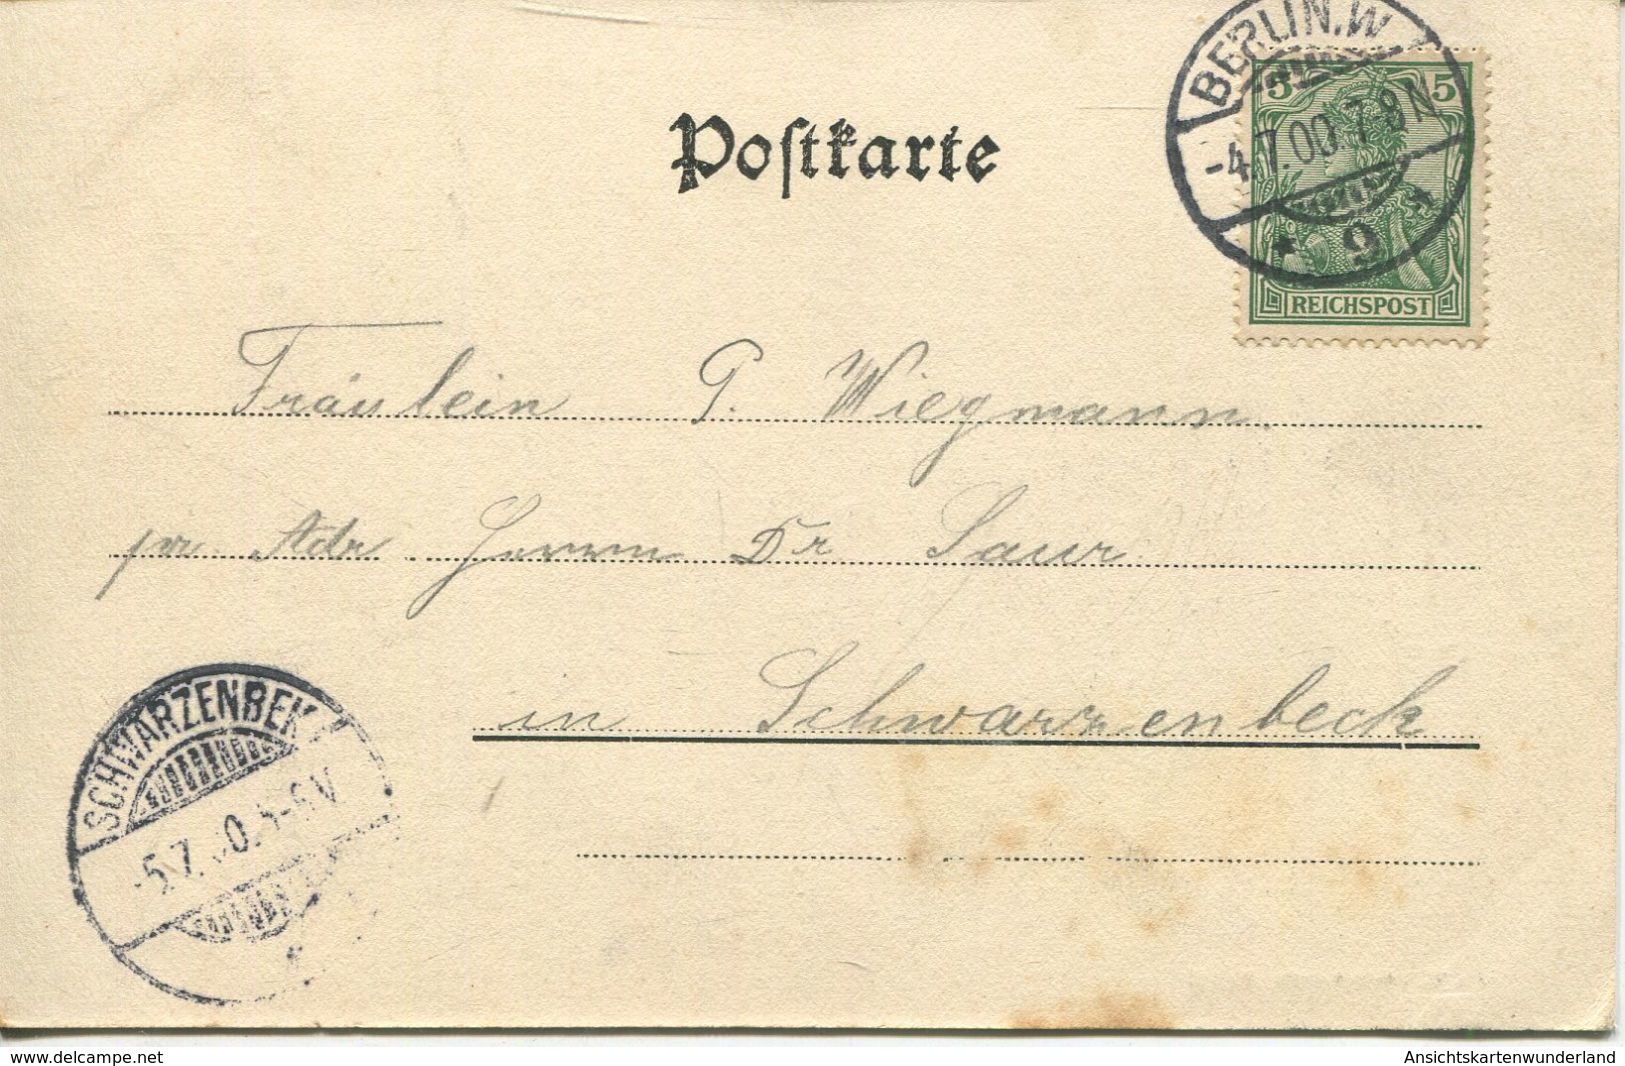 Postkarte
BERLIN.W.
-4.7.00.7-8N.
* 9 *
5 5
REICHSPOST
Fräulein G. Wiegmann
pr. Adr. Herrn Dr Saur
in Schwarzenbeck
SCHWARZENBEK
-5.7. 0. V
www.delcampe.net
Ansichtskartenwunderland